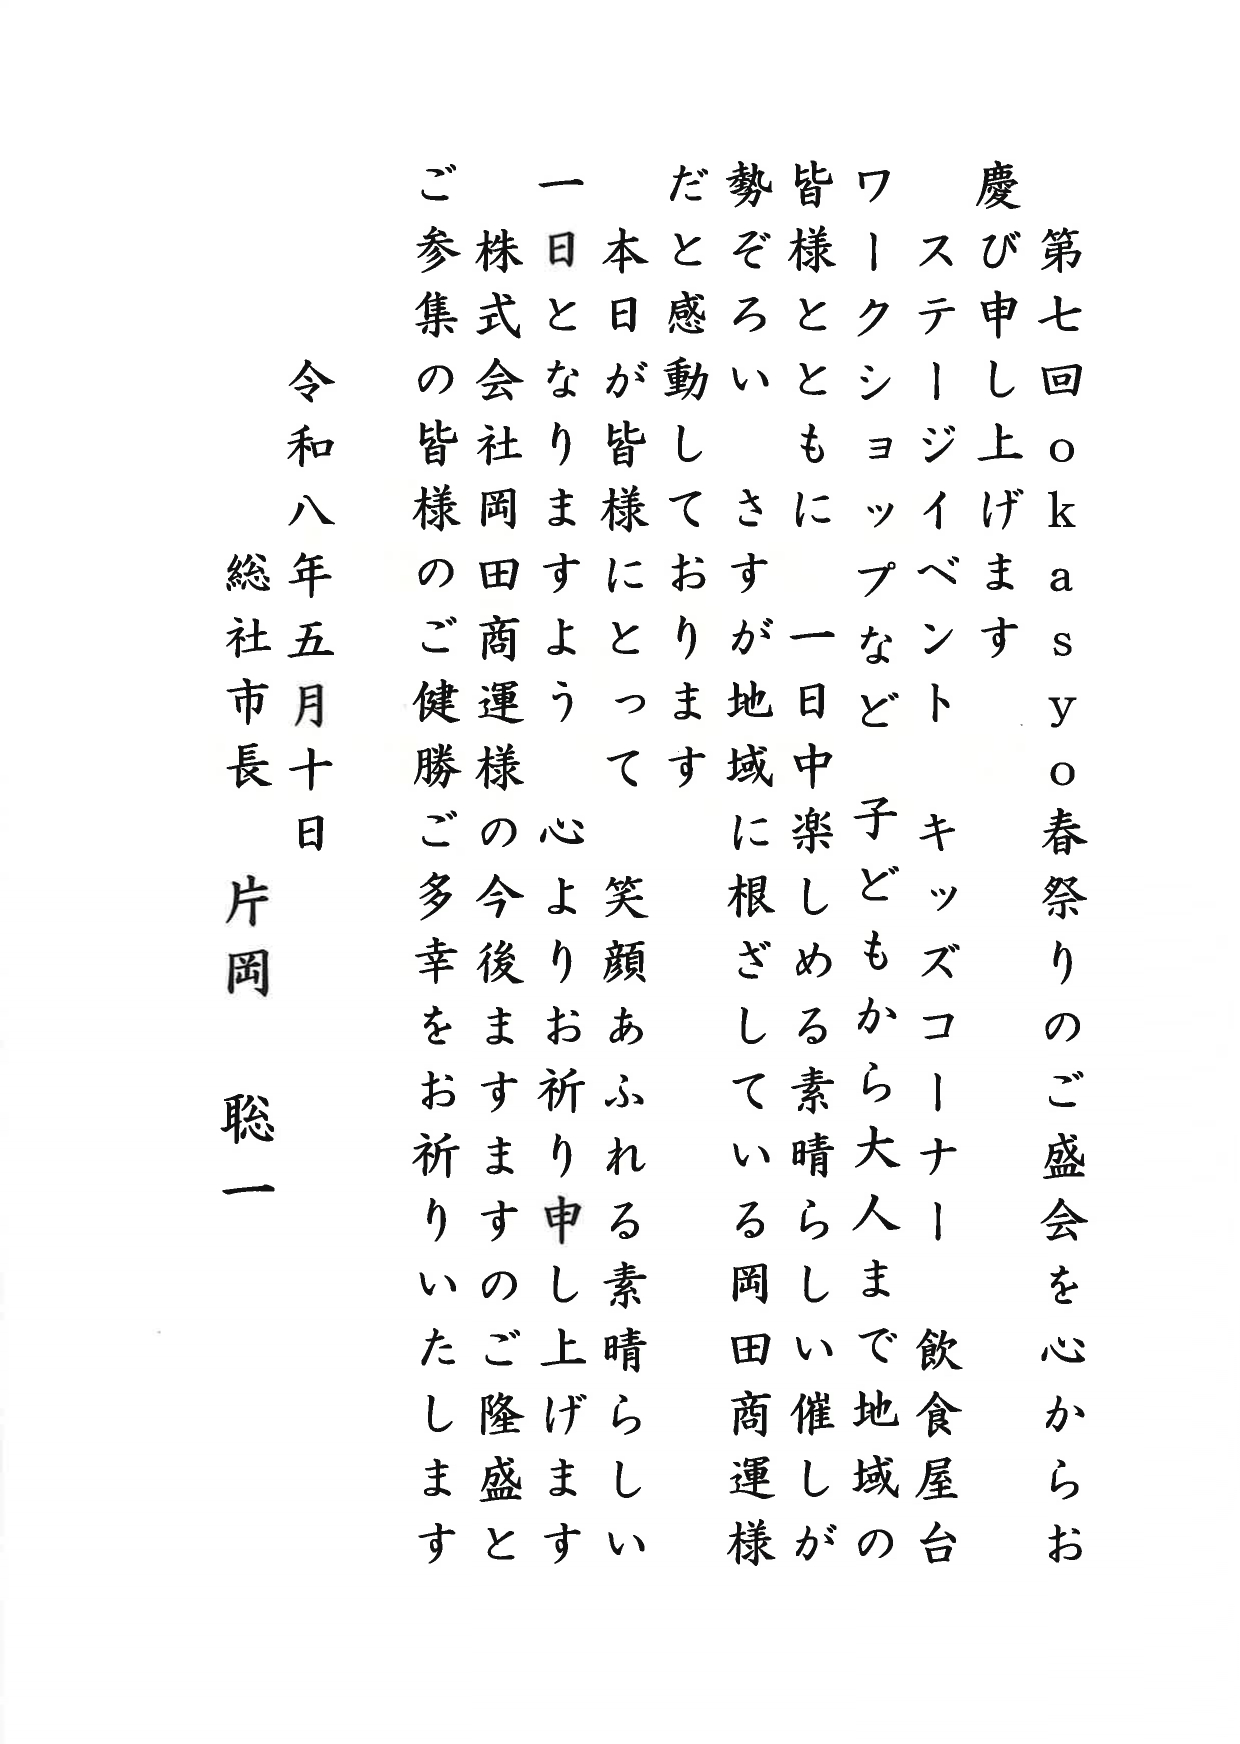 第七回ｏｋａｓｙｏ春祭りのご盛会を心からお
慶び申し上げます
　ステージイベント　キッズコーナー　飲食屋台
ワークショップなど　子どもから大人まで地域の
皆様とともに　一日中楽しめる素晴らしい催しが
勢ぞろい　さすが地域に根ざしている岡田商運様
だと感動しております
　本日が皆様にとって　笑顔あふれる素晴らしい
一日となりますよう　心よりお祈り申し上げます
　株式会社岡田商運様の今後ますますのご隆盛と
ご参集の皆様のご健勝ご多幸をお祈りいたします
令和八年五月十日
総社市長　片岡　聡一